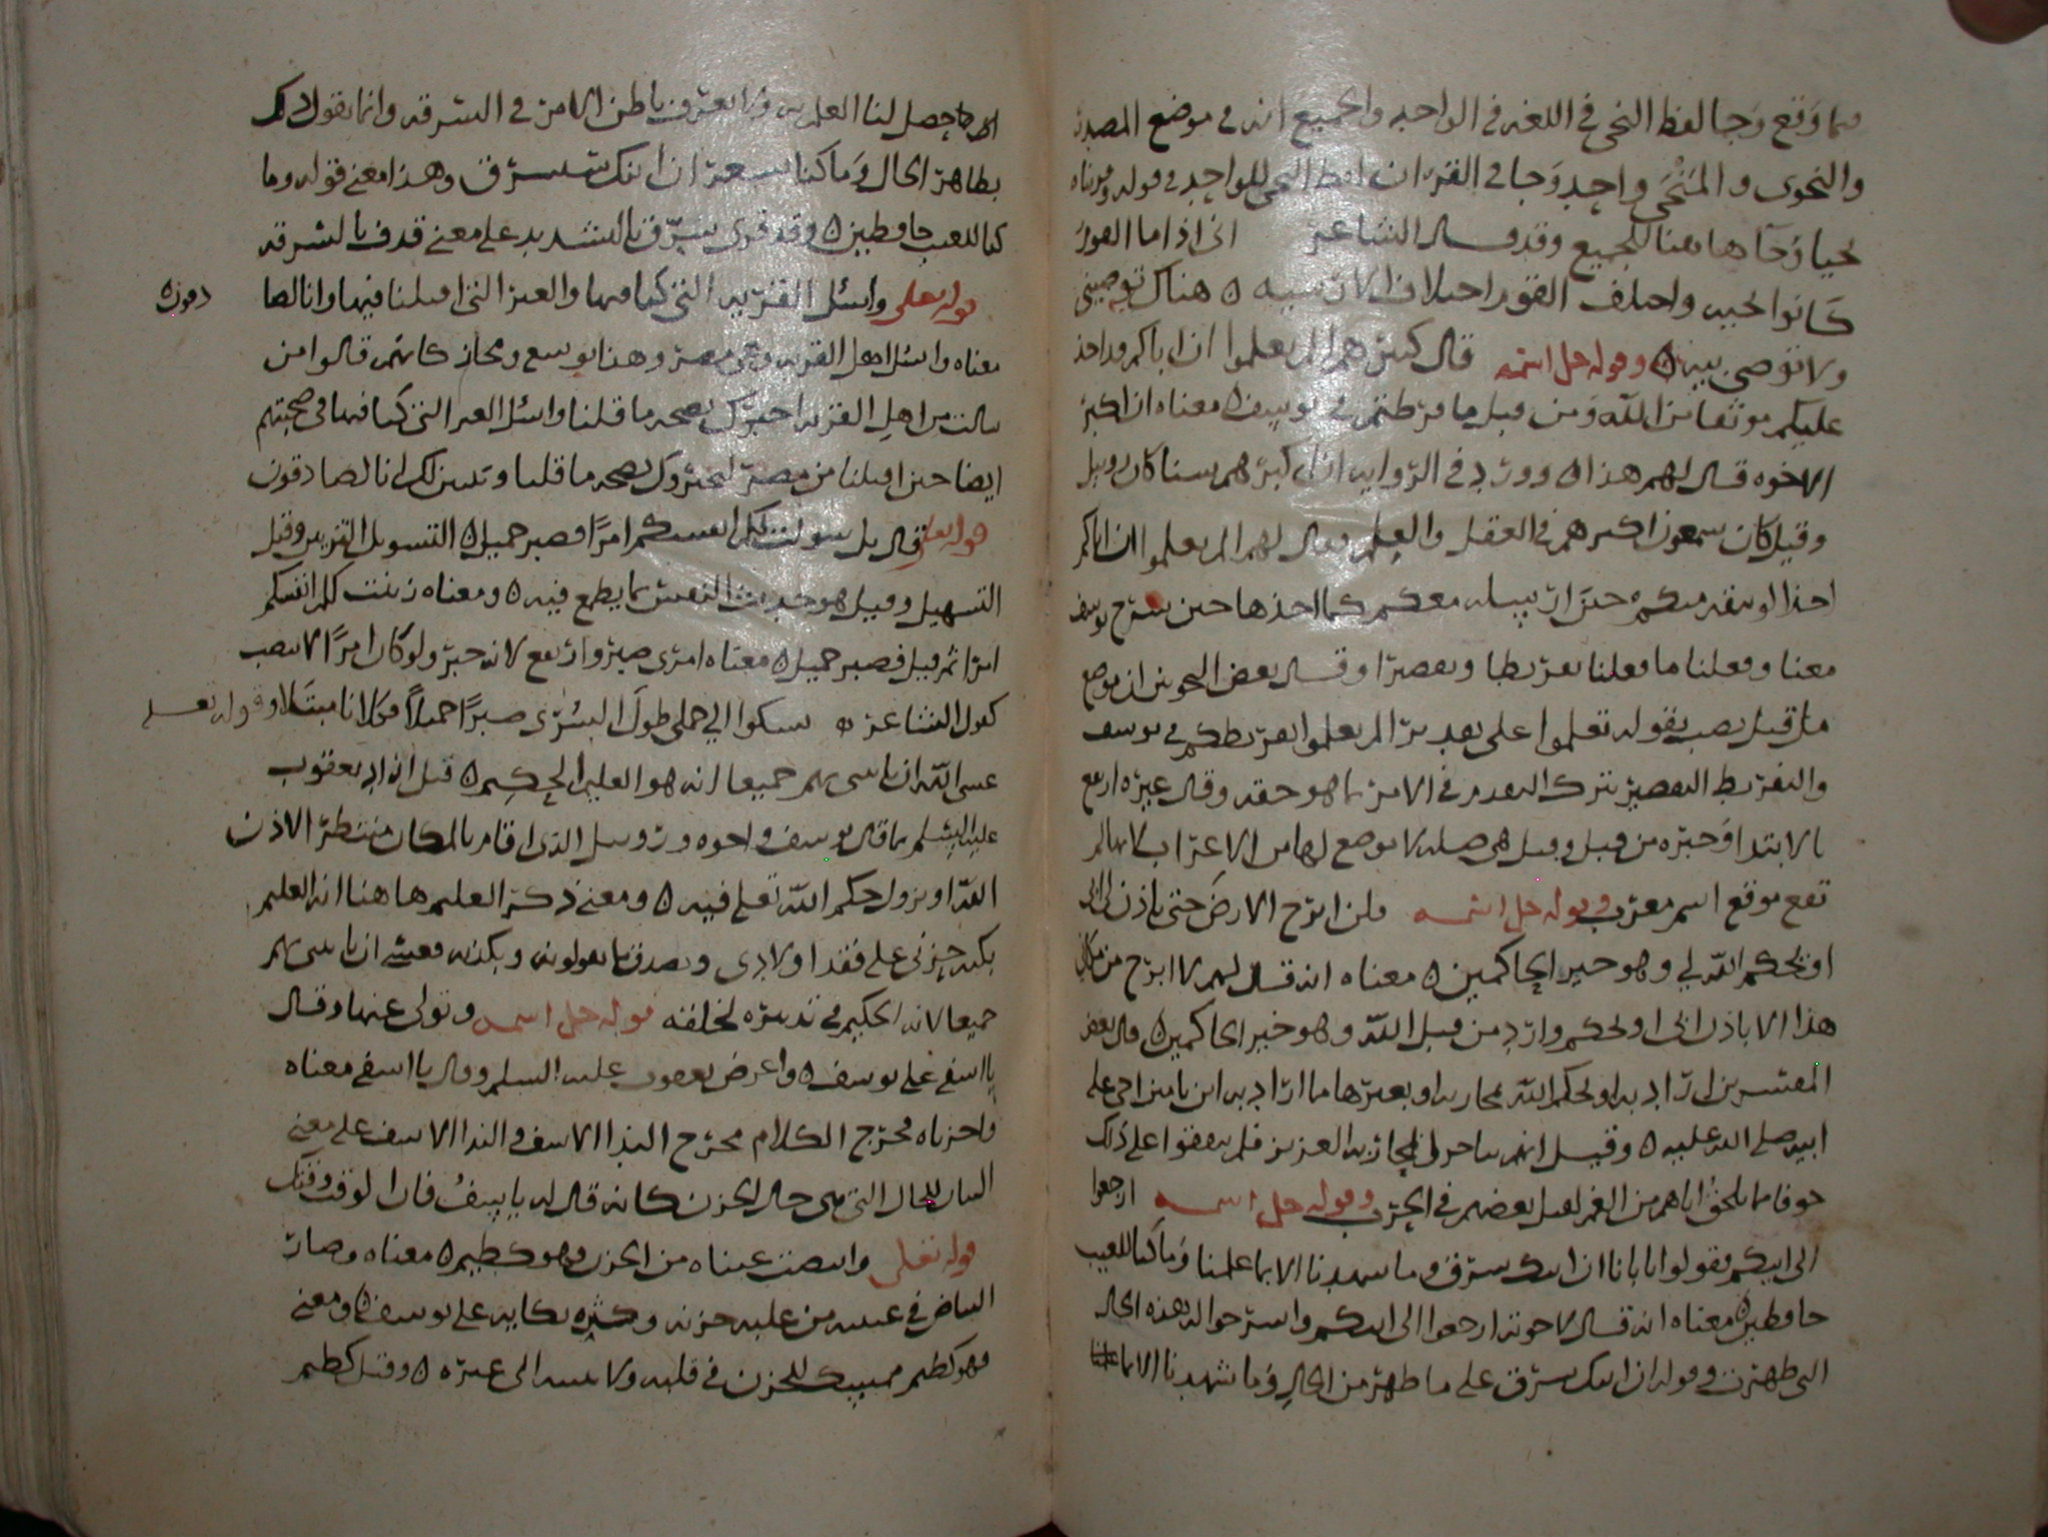 فيما وقع وجا لفظ النجي في اللغه في الواحد والجميع انه في موضع المصدر
والنجوى والمنجى واحد وجا في القران لفظ النجي للواحد في قوله وقربناه
نجيا وجا هاهنا للجميع وقد قال الشاعر اني اذا ما القوم
كانوا نجيه واختلف القوم اختلاف الارشيه ه هناك توصيني
ولا توصي بيه ه وقوله جل اسمه قال كبيرهم الم تعلموا ان اباكم قد اخذ
عليكم موثقا من الله ومن قبل ما فرطتم في يوسف ه معناه ان اكبر
الاخوه قال لهم هذا ه وورد في الروايه ان اكبرهم سنا كان روبيل
وقيل كان سمعون اكبرهم في العقل والعلم فقال لهم الم تعلموا ان اباكم
اخذ الوثيقه منكم حين ارسله معكم كما اخذها حين سرح يوسف
معنا وفعلنا ما فعلنا تفريطا وتقصيرا وقال بعض النحويين ان موضع
ما من قبل نصب بقوله تعلموا على تقدير الم تعلموا تفريطكم في يوسف
والتفريط التقصير بترك التقدم في الامر بما هو حقه وقال غيره ارتفع
بالابتدا وخبره من قبل وقيل هي صله لا موضع لها من الاعراب لانها لم
تقع موقع اسم معرب وقوله جل اسمه فلن ابرح الارض حتى ياذن لي ابي
او يحكم الله لي وهو خير الحاكمين ه معناه انه قال لهم لا ابرح من مكاني
هذا الا باذن ابي او لحكم وارد من قبل الله وهو خير الحاكمين ه قال بعض
المفسرين اراد به او لحكم الله بمحاربه او بغيرها ما اراد به ابن يامين اخي على
ابيه صلى الله عليه ه وقيل انهم تناجوا في محاربه العزيز فلم يتفقوا على ذلك
خوفا مما يلحق اباهم من الغم لقتل بعضهم في الحرب وقوله جل اسمه ارجعوا
الى ابيكم فقولوا يا ابانا ان ابنك سرق وما شهدنا الا بما علمنا وما كنا للغيب
حافظين ه معناه انه قال لاخوته ارجعوا الى ابيكم واشرحوا له هذه الحال
التي ظهرت وقوله ان ابنك سرق على ما ظهر من الحال وما شهدنا الا بما
حصل لنا العلم به ولا نعرف باطن الامر في السرقه وانما نقول ذلك
بظاهر الحال وما كنا نشعر ان ابنك سيسرق وهذا معنى قوله وما
كنا للغيب حافظين ه وقد قرى سرّق بالتشديد على معنى قذف بالسرقه
قوله تعلى واسئل القريه التي كنا فيها والعير التي اقبلنا فيها وانا لصا
دقون ه
معناه واسئل اهل القريه وهي مصر وهذا توسع ومجاز كانهم قالوا من
سالت من اهل القريه اخبرك بصحه ما قلنا واسئل العير التي كنا فيها في صحبتهم
ايضا حين اقبلنا من مصر ليخبروك بصحه ما قلنا وتبين لك انا لصادقون
قوله تعلى قال بل سولت لكم انفسكم امرا فصبر جميل ه التسويل التزيين وقيل
التسهيل وقيل هو حديث النفس بما يطمع فيه ه ومعناه زينت لكم انفسكم
امرا ثم قيل فصبر جميل ه معناه امري صبر وارتفع لانه خبر ولو كان امرا لانتصب
كقول الشاعر ه يشكوا الي جملي طول السرى صبرا جميلا فكلانا مبتلا وقوله تعلى
عسى الله ان ياتيني بهم جميعا انه هو العليم الحكيم ه قيل انه اراد يعقوب
عليه السلم بما قال يوسف واخوه وروبيل الذي اقام بالمكان منتظرا لاذن
له او نزول حكم الله تعلى فيه ه ومعنى ذكر العليم هاهنا انه العليم
بكنه حزني على فقد اولادي وبصدق ما يقولونه وبكذبه فعسى ان ياتيني بهم
جميعا لانه الحكيم في تدبيره لخلقه قوله جل اسمه وتولى عنهم وقال
يا اسفى على يوسف ه واعرض يعقوب عليه السلم وقال يا اسفى معناه
واحزناه فخرج الكلام مخرج الندا الاسف والندا الاسف على معنى
البيان للحال التي هي حال الحزن كانه قال له يا اسف فان الوقت وقتك
قوله تعلى وابيضت عيناه من الحزن فهو كظيم ه معناه وصار
البياض في عينيه من غلبه حزنه وكثره بكايه على يوسف ه ومعنى
فهو كظيم ممسك للحزن في قلبه ولا يبثه الى غيره ه وقيل كظيم